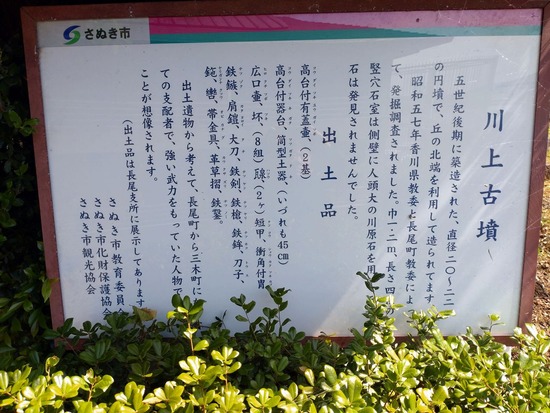 さぬき市
川上古墳
五世紀後期に築造された、直径二〇～二二
の円墳で、丘の北端を利用して造られてます
昭和五七年香川県教委と長尾町教委によ
て、発掘調査されました。巾一・二m、長さ四
竪穴石室は側壁に人頭大の川原石を用
石は発見されませんでした。
出土品
高台付有蓋壷、(2基)
高台付器台、筒型土器、(いづれも45㎝)
広口壷、坏、(8組)𤭯(2ヶ)短甲、衝角付冑
鉄鏃、肩鎧、大刀、鉄剣、鉄槍、鉄鉾、刀子、
鉇、轡、帯金具、革草摺、鉄鋌。
出土遺物から考えて、長尾町から三木町に
ての支配者で、強い武力をもっていた人物で
ことが想像されます。
(出土品は長尾支所に展示してあります
さぬき市教育委員会
さぬき市文化財保護協会
さぬき市観光協会